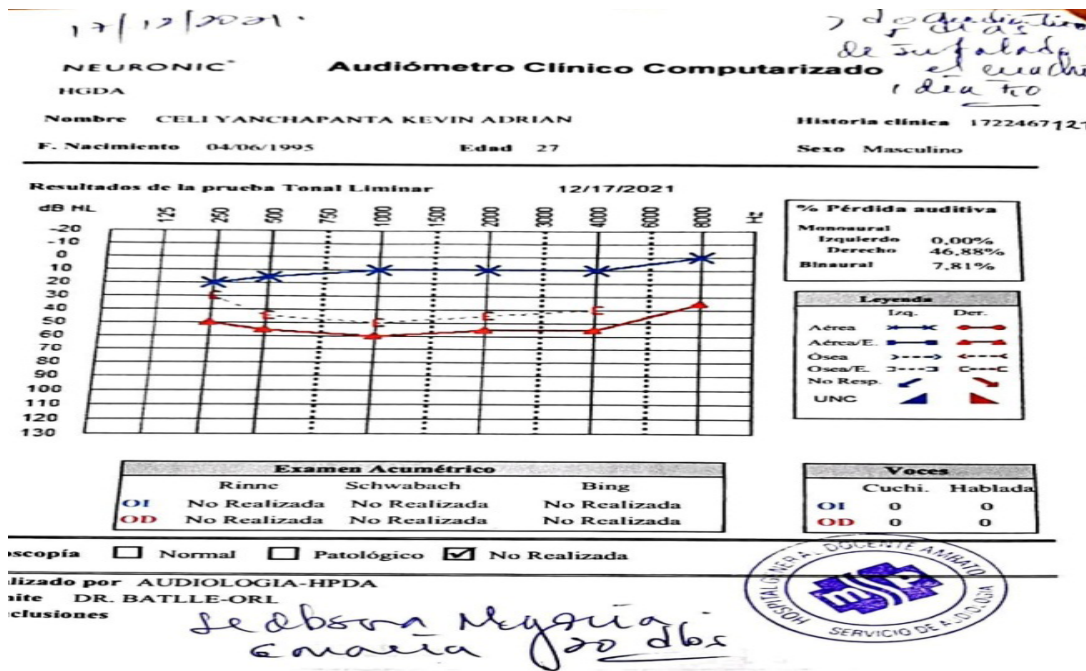 17/12/2021.
NEURONIC®
Audiómetro Clínico Computarizado
HGDA
Nombre CELI YANCHAPANTA KEVIN ADRIAN Historia clínica 1722467121
F. Nacimiento 04/06/1995 Edad 27 Sexo Masculino
Resultados de la prueba Tonal Liminar 12/17/2021
dB HL 125 250 500 750 1000 1500 2000 3000 4000 6000 8000 Hz
-20
-10
0
10
20
30
40
50
60
70
80
90
100
110
120
130
% Pérdida auditiva
Monoaural
Izquierdo 0,00%
Derecho 46,88%
Binaural 7,81%
Leyenda
Izq. Der.
Aérea
Aérea/E.
Ósea
Osea/E.
No Resp.
UNC
Examen Acumétrico
Rinne Schwabach Bing
OI No Realizada No Realizada No Realizada
OD No Realizada No Realizada No Realizada
Voces
Cuchi. Hablada
OI 0 0
OD 0 0
oscopía Normal Patológico No Realizada
lizado por AUDIOLOGIA-HPDA
nite DR. BATLLE-ORL
clusiones
se observa
20 dbs
HOSPITAL GENERAL DOCENTE AMBATO
SERVICIO DE AUDIOLOGIA